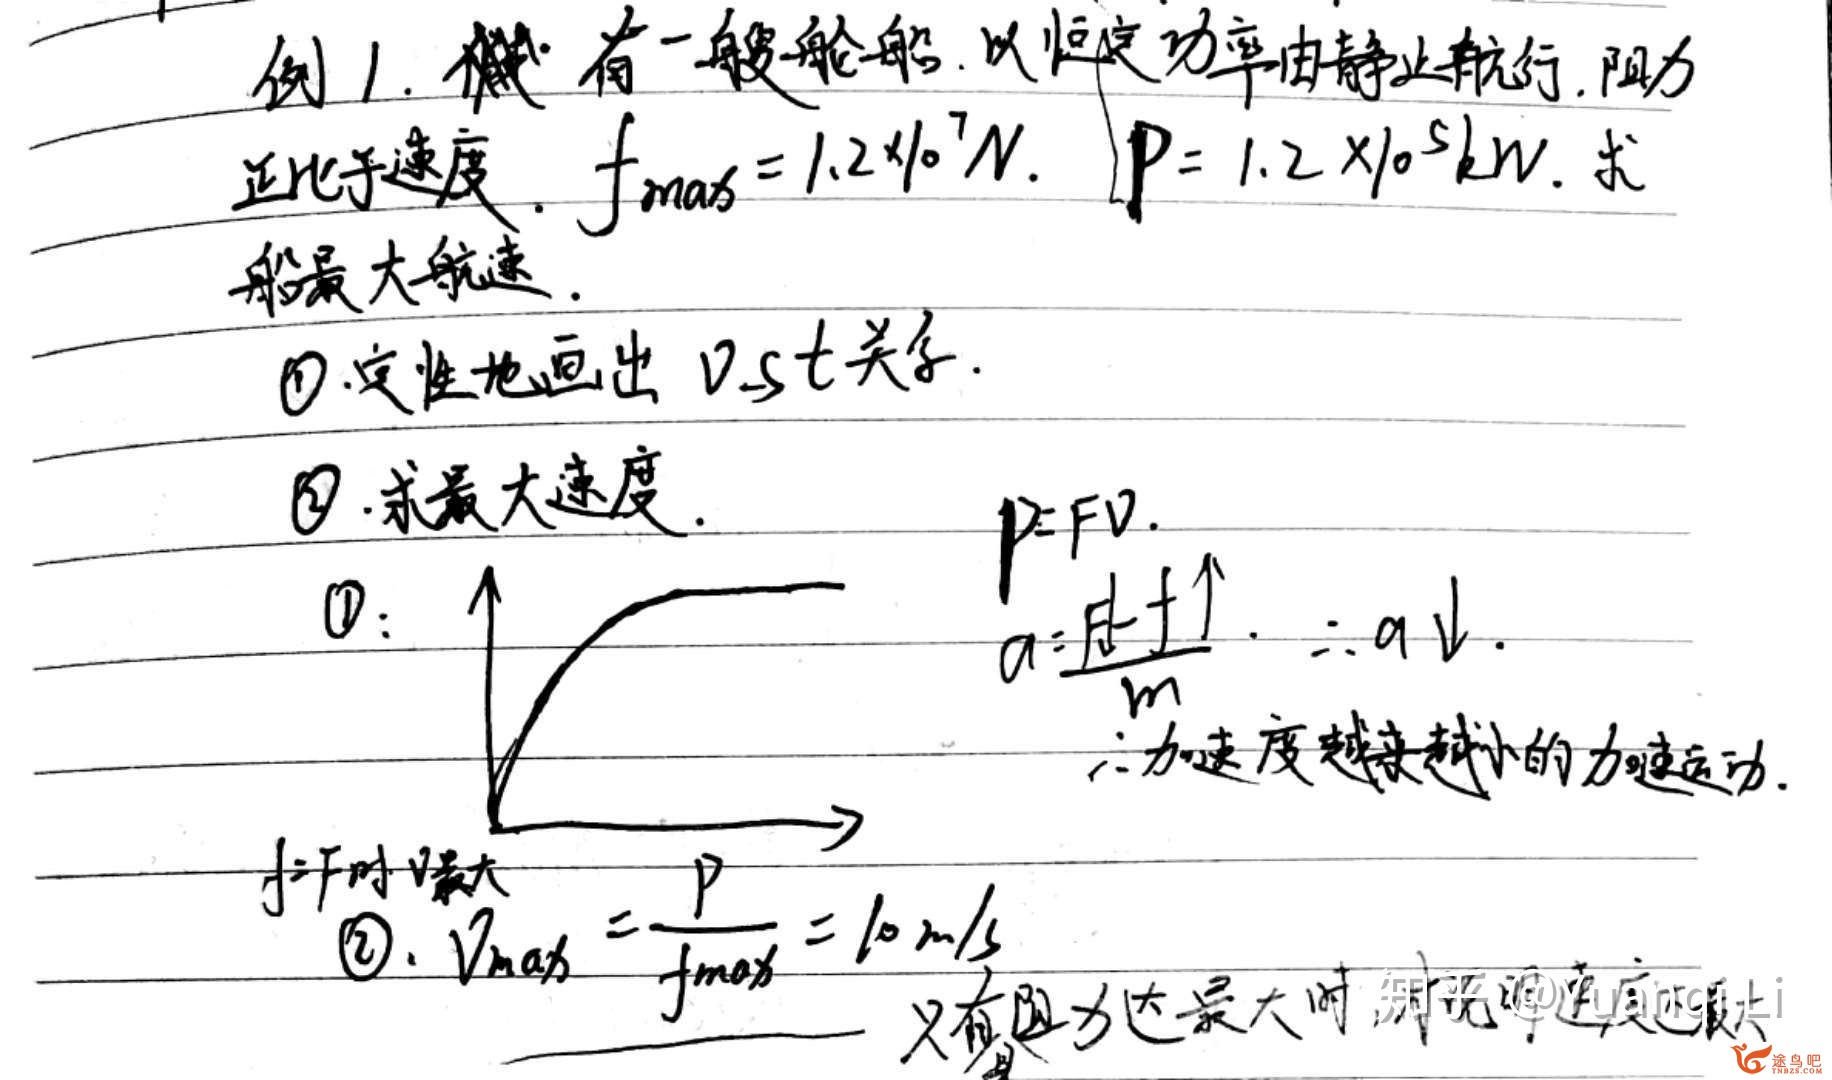 例1. 有一艘轮船.以恒定功率由静止航行.阻力
正比于速度. fmax=1.2×10⁷N. P=1.2×10⁵kW.求
船最大航速.
①.定性地画出 v-s t关系.
②.求最大速度.
P=FV.
①:
a=(F↓-f↑)/m. ∴a↓.
∴加速度越来越小的加速运动.
f=F时V最大
②. Vmax=P/fmax=10m/s
只有阻力达最大时 速度达最大
知乎 @YuanqiLi
途鸟吧
TNBZS.COM